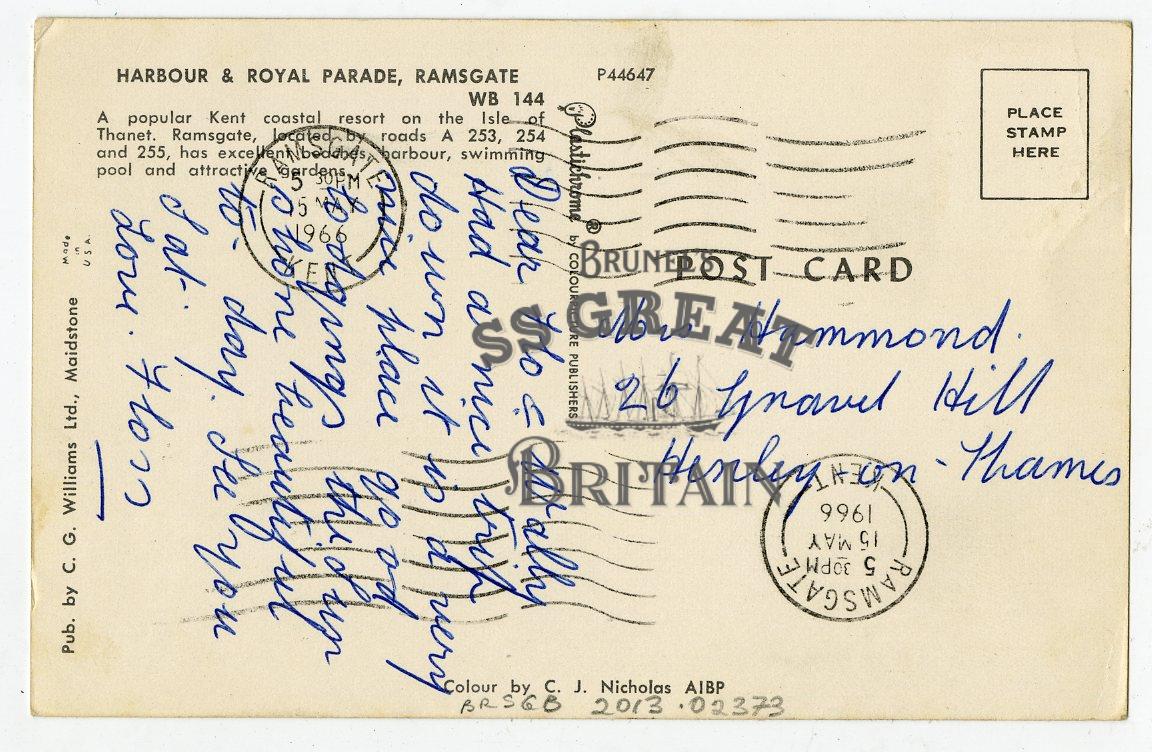 HARBOUR & ROYAL PARADE, RAMSGATE
WB 144
A popular Kent coastal resort on the Isle of
Thanet. Ramsgate, located by roads A 253, 254
and 255, has excellent beaches, harbour, swimming
pool and attractive gardens.
P44647
PLACE
STAMP
HERE
Plastichrome ®
by COLOURPICTURE PUBLISHERS
POST CARD
RAMSGATE
5 30PM
15 MAY
1966
KENT
Dear Flo & Wally
Had a nice trip
down it is a very
nice place good
lodgings this trip
so here beautiful
to-day. See you
Sat.
Love. Floss
Mrs Hammond.
26 Gravel Hill
Henley on-Thames
BRUNEL'S
SS GREAT
BRITAIN
RAMSGATE
5 30PM
15 MAY
1966
KENT
Made
in
U.S.A.
Pub. by C. G. Williams Ltd., Maidstone
Colour by C. J. Nicholas AIBP
BRSGB 2013.02373